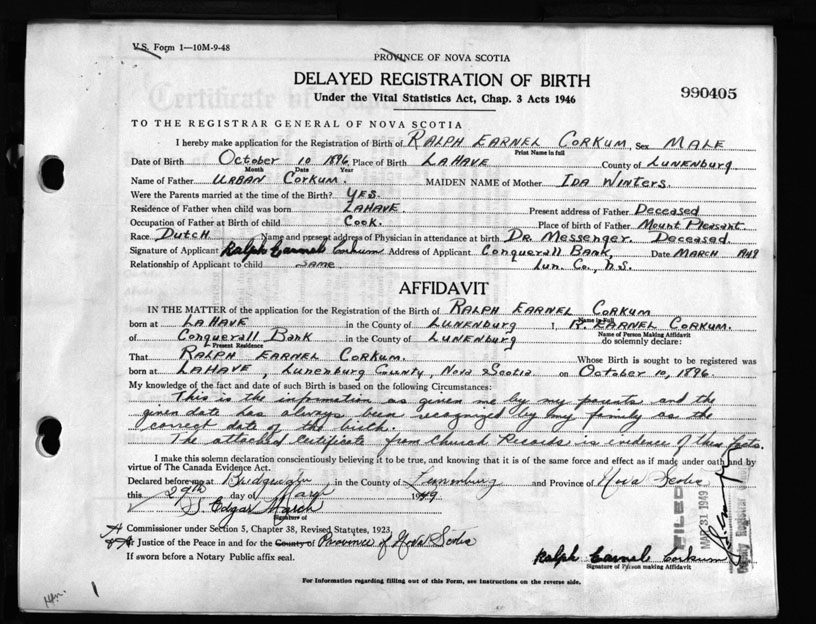 V.S. Form 1—10M-9-48
PROVINCE OF NOVA SCOTIA
DELAYED REGISTRATION OF BIRTH
Under the Vital Statistics Act, Chap. 3 Acts 1946
990405
TO THE REGISTRAR GENERAL OF NOVA SCOTIA
I hereby make application for the Registration of Birth of RALPH EARNEL CORKUM, Sex MALE
Print Name in full
Date of Birth October 10 1896, Place of Birth LAHAVE County of LUNENBURG.
Month Date Year
Name of Father URBAN CORKUM. MAIDEN NAME of Mother IDA WINTERS.
Were the Parents married at the time of the Birth? YES.
Residence of Father when child was born LAHAVE. Present address of Father Deceased
Occupation of Father at Birth of child Cook. Place of birth of Father Mount Pleasant.
Race DUTCH Name and present address of Physician in attendance at birth DR. Messenger. Deceased.
Signature of Applicant Ralph Earnel Corkum Address of Applicant Conquerall Bank, Date MARCH 1949
Relationship of Applicant to child same. Lun. Co., N.S.
AFFIDAVIT
IN THE MATTER of the application for the Registration of the Birth of RALPH EARNEL CORKUM
Name in Full
born at LAHAVE in the County of LUNENBURG I, R. EARNEL CORKUM.
Name of Person Making Affidavit
of Conquerall Bank in the County of LUNENBURG do solemnly declare:
Present Residence
That RALPH EARNEL CORKUM. Whose Birth is sought to be registered was
born at LAHAVE, Lunenburg County, Nova Scotia on October 10, 1896.
My knowledge of the fact and date of such Birth is based on the following Circumstances:
This is the information as given me by my parents and the
given date has always been recognized by my family as the
correct date of the birth.
The attached Certificate from Church Records is evidence of these facts.
I make this solemn declaration conscientiously believing it to be true, and knowing that it is of the same force and effect as if made under oath and by
virtue of The Canada Evidence Act.
Declared before me at Bridgewater in the County of Lunenburg and Province of Nova Scotia
this 29th day of March 1949
S. Edgar March
Signature of
A Commissioner under Section 5, Chapter 38, Revised Statutes, 1923,
or Justice of the Peace in and for the County of Province of Nova Scotia
If sworn before a Notary Public affix seal.
Ralph Earnel Corkum
Signature of Person making Affidavit
FILED
MAR 31 1949
Deputy Registrar
For Information regarding filling out of this Form, see instructions on the reverse side.